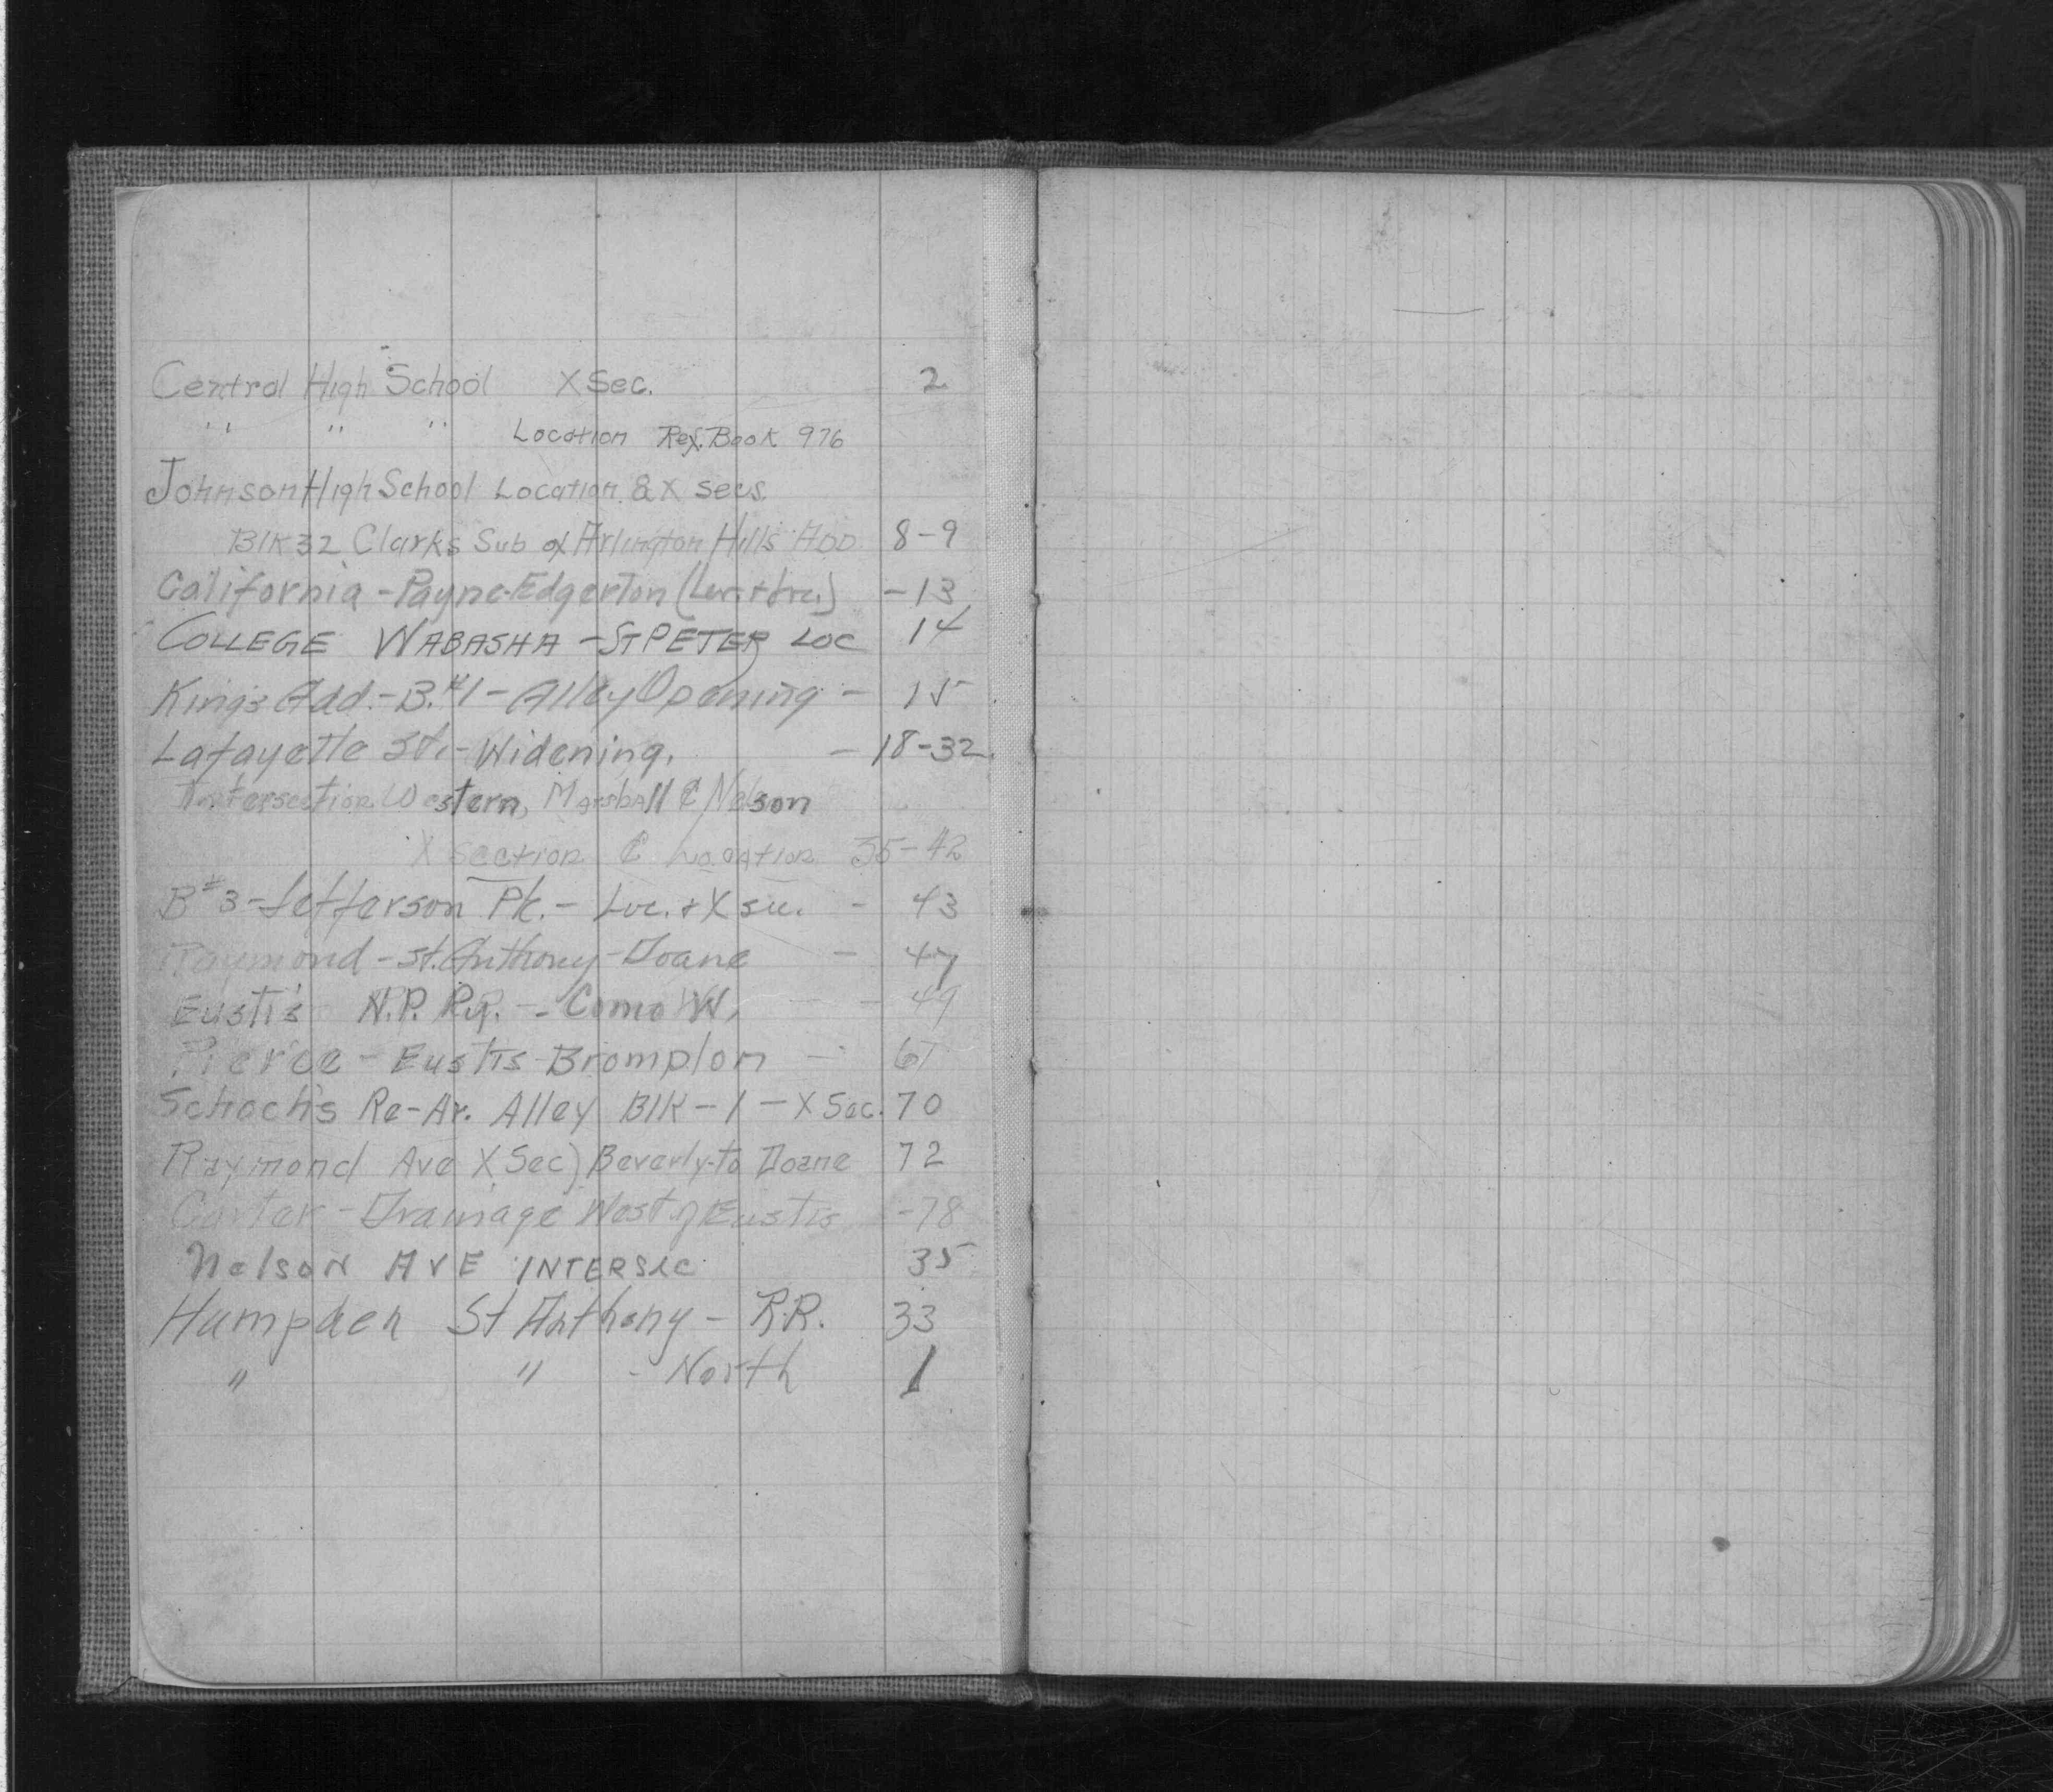 Central High School X Sec. 2
" " " Location Ref. Book 976
Johnson High School Location & X secs.
Blk 32 Clarks Sub of Arlington Hills Add. 8-9
California - Payne-Edgerton (Lev. + Loc.) - 13
COLLEGE WABASHA - ST PETER LOC 14
Kings Add. - B.#1 - Alley Opening - 15
Lafayette St. - Widening. - 18-32.
Intersection Western, Marshall & Nelson
X section & Location 35-42
B#3 - Jefferson Pk. - Loc. + X sec. - 43
Raymond - St. Anthony - Doane - 47
Eustis N.P. Ry. - Como W. - 49
Pierce - Eustis - Brompton - 67
Schoch's Re-Ar. Alley Blk - 1 - X Sec. 70
Raymond Ave X Sec) Beverly to Doane 72
Carter - Drainage West of Eustis - 78
Nelson AVE INTERSEC 35
Hampden St Anthony - R.R. 33
" " - North 1